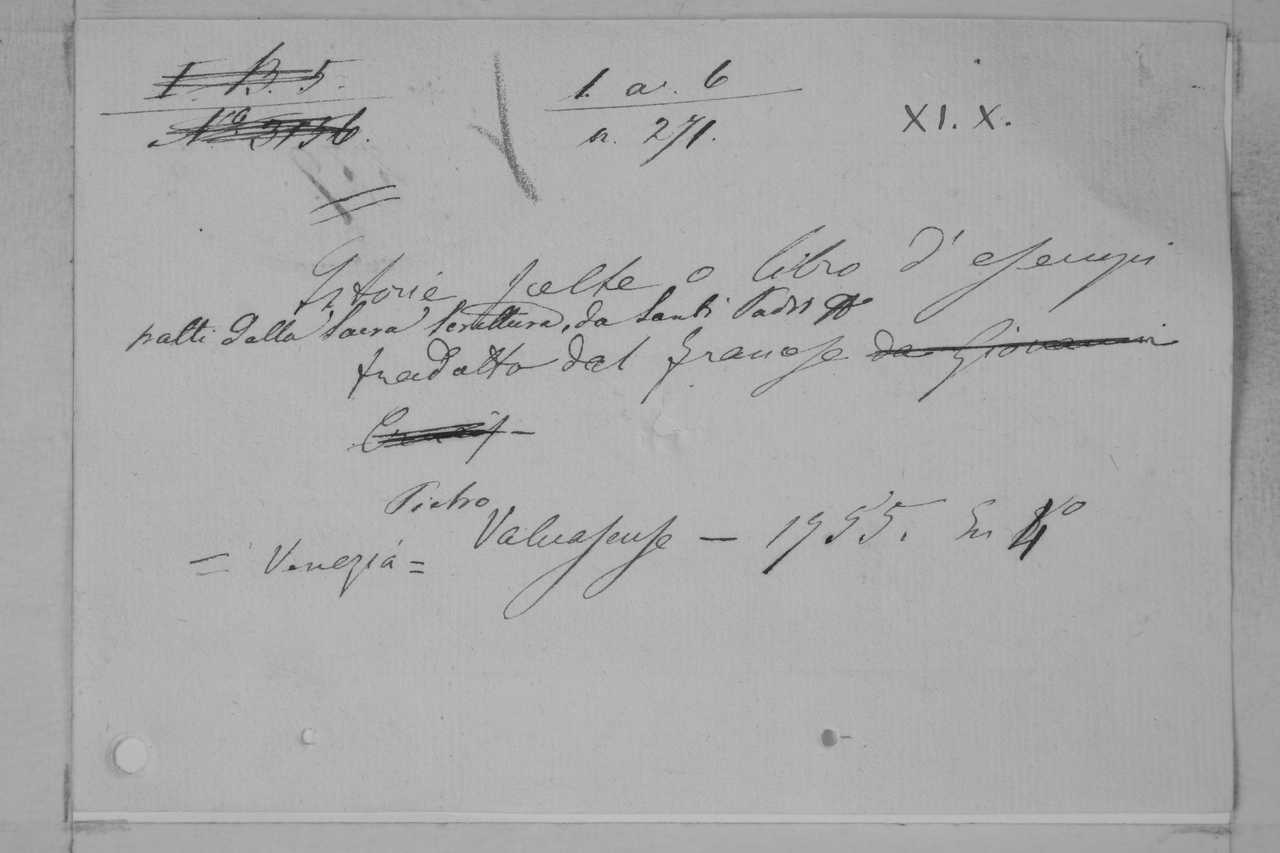 I. B. 5.
N.ro 3136.
1. a. 6
n. 271.
XI. X.
Istorie scelte o libro d'esempi
tratti dalla Sacra Scrittura, da Santi Padri
tradotto dal francese da Giovanni
Pietro
= Venezia = Valvasense — 1755. In 4o